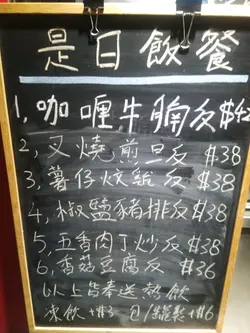 是日飯餐
1,咖喱牛腩反$42
2,叉燒煎旦反 $38
3,薯仔炆雞反$38
4,椒鹽豬排反$38
5,五香肉丁炒反$38
6,香菇豆腐反 $36
以上皆奉送熱飲
凍飲+$3 包/罐裝+$6